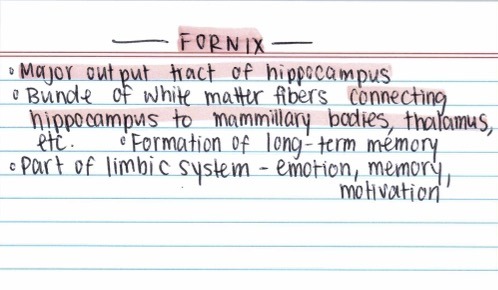 — FORNIX —
◦ Major output tract of hippocampus
◦ Bundle of white matter fibers connecting
hippocampus to mammillary bodies, thalamus,
etc. ◦ Formation of long-term memory
◦ Part of limbic system - emotion, memory,
motivation